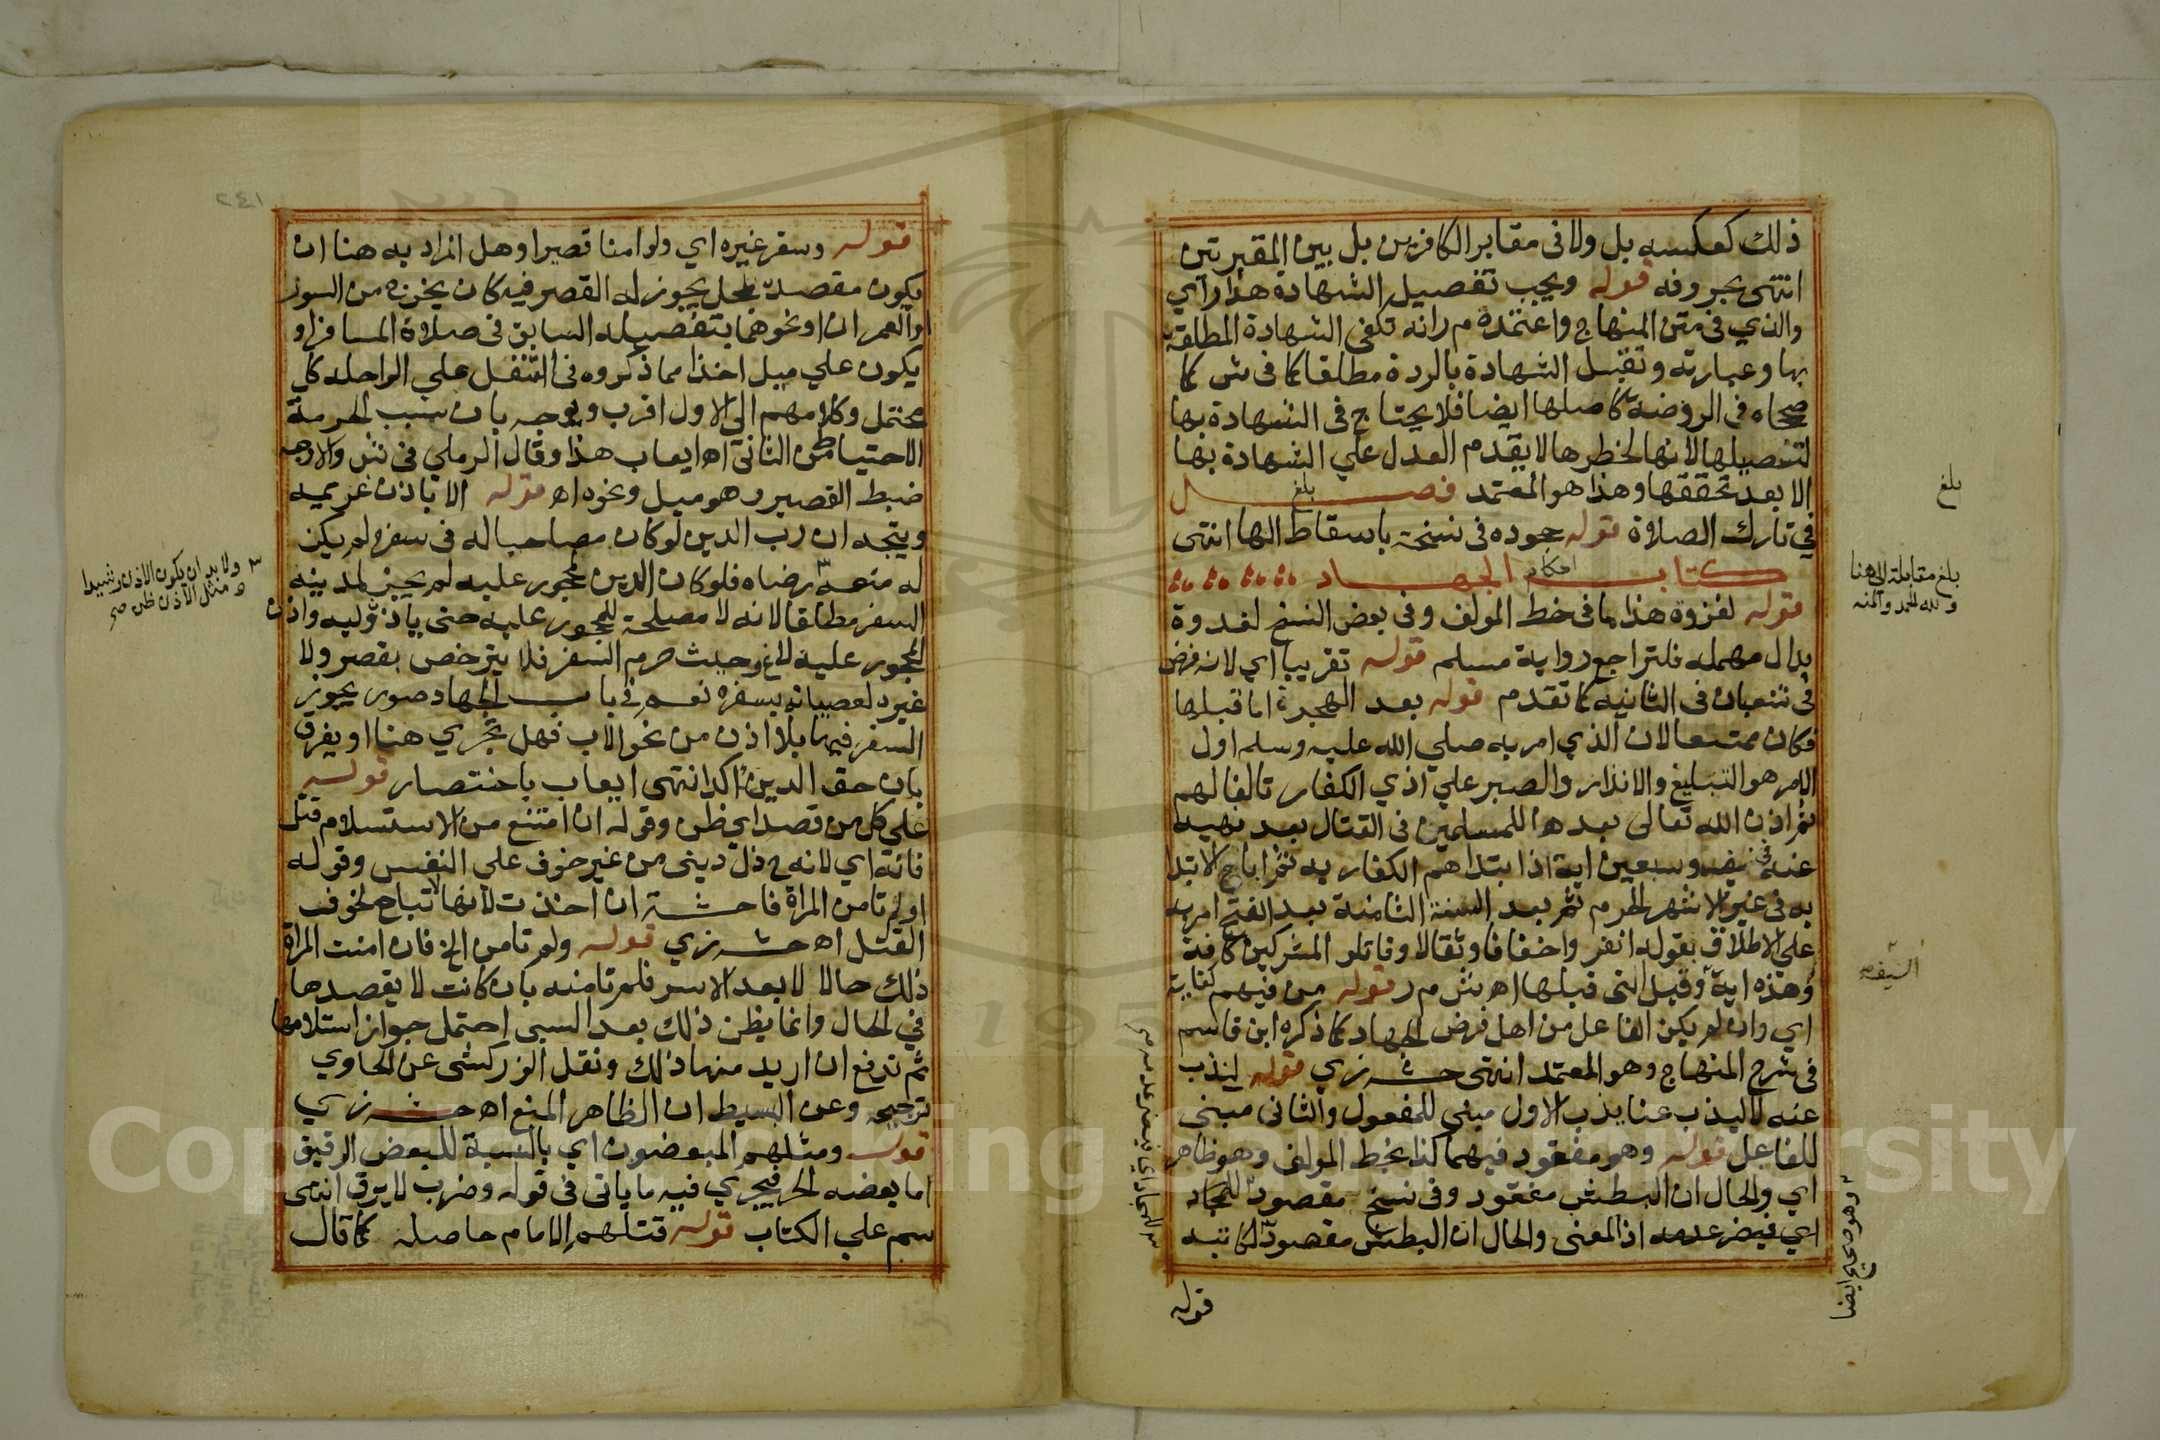 ذلك كعكسه بل ولا في مقابر الكافرين بل بين المقبرتين
انتهى بحروفه قوله ويجب تفصيل الشهادة هذا رأي
والذي في متن المنهاج واعتمده م ر انه تكفي الشهادة المطلقة
بها وعبارته وتقبل الشهادة بالردة مطلقا كما في ش كما
صححاه في الروضة كاصلها ايضا فلا يحتاج في الشهادة بها
لتفصيلها لانها لخطرها لا يقدم العدل علي الشهادة بها
الا بعد تحققها وهذا هو المعتمد فصل
بلغ
في تارك الصلاة قوله جحوده في نسخة باسقاط الها انتهى
كتاب احكام الجهاد
قوله لغزوة هذا ما في خط المولف وفي بعض النسخ لغدوة
بدال مهمله فلتراجع رواية مسلم قوله تقريبا اي لانه فرض
في شعبان في الثانيه كما تقدم قوله بعد الهجرة اما قبلها
فكان ممتنعا لان الذي امر به صلي الله عليه وسلم اول
الامر هو التبليغ والانذار والصبر علي اذي الكفار تالفا لهم
ثم اذن الله تعالى بعدها للمسلمين في القتال بعد نهيه
عنه في نيف وسبعين اية اذا ابتداهم الكفار به ثم اباح الابتدا
به في غير الاشهر الحرم ثم بعد السنة الثامنة بعد الفتح امر به
علي الاطلاق بقوله انفروا خفافا وثقالا وقاتلو المشركين كافة
وهذه اية وقيل التي قبلها اه ش م ر قوله من فيهم كفاية
اي وان لم يكن الفاعل من اهل فرض الجهاد كما ذكره ابن قاسم
في شرح المنهاج وهو المعتمد انتهى حشـ زي قوله ليذب
عنه لا ليذب عنا يذب الاول مبني للمفعول والثاني مبني
للفاعل قوله وهو مفقود فيهما كذا بخط المولف وهو ظاهر
اي والحال ان البطش مفقود وفي نسخ مقصود للنجاه
اي فيضر عدمه اذ المعنى والحال ان البطش مقصود لكاتبه
قوله
بلغ
بلغ مقابلة الي هنا
ولله الحمد والمنه
السيف
وهو صحيح ايضا
٢٤١
قوله وسفر غيره اي ولو امنا قصيرا وهل المراد به هنا ان
يكون مقصده لمحل يجوز له القصر فيه كان يخرج من السور
والعمران او نحوهما بتفصيله السابق في صلاة المسافر او
يكون علي ميل اخذا مما ذكروه في التنفل علي الراحله كل
محتمل وكلامهم الي الاول اقرب ويوجه بان سبب الحرمة
الاحتياط من الثاني اه ايعاب هذا وقال الرملي في ش والاوجه
ضبط القصير وهو ميل ونحوه اه قوله الا باذن غريمه
ويتجه ان رب الدين لو كان مصاحبا له في سفره لم يكن
له منعه رضاه فلو كان الدين لمحجور عليه لم يجز لمدينه
السفر مطلقا لانه لا مصلحة للمحجور عليه حتى ياذن وليه واذن
المحجور عليه لاغ وحيث حرم السفر فلا يترخص بقصر ولا
غيره لعصيانه بسفره نعم في باب الجهاد صور يجوز
السفر فيها بلا اذن من نحو الاب فهل تجري هنا او يفرق
بان حق الدين اكد انتهى ايعاب باختصار قوله
علي كل من قصد اي ظن وقوله ان امتنع من الاستسلام قتل
فانه اي لانه ح ذل ديني من غير خوف علي النفس وقوله
او لم تامن المراة فاحشة ان اخذت لانها لا تباح لخوف
القتل اه حشـ زي قوله ولم تامن الخ فان امنت المراة
ذلك حالا لا بعد الاسر فلم تامنه بان كانت لا يقصدها
في الحال وانما يظن ذلك بعد السبي احتمل جواز استلامها
ثم تدفع ان اريد منها ذلك ونقل الزركشي عن الحاوي
ترجيحه وعن البسيط ان الظاهر المنع اه حشـ زي
قوله ومثلهم المبعضون اي بالنسبة للبعض الرقيق
اما بعضه الحر فيجري فيه ما ياتي في قوله وضرب لا يرق انتهى
سم علي الكتاب قوله قتلهم الامام حاصله كما قال
٣ ولا بد ان يكون الاذن رشيدا
و مثل الاذن ظن صح